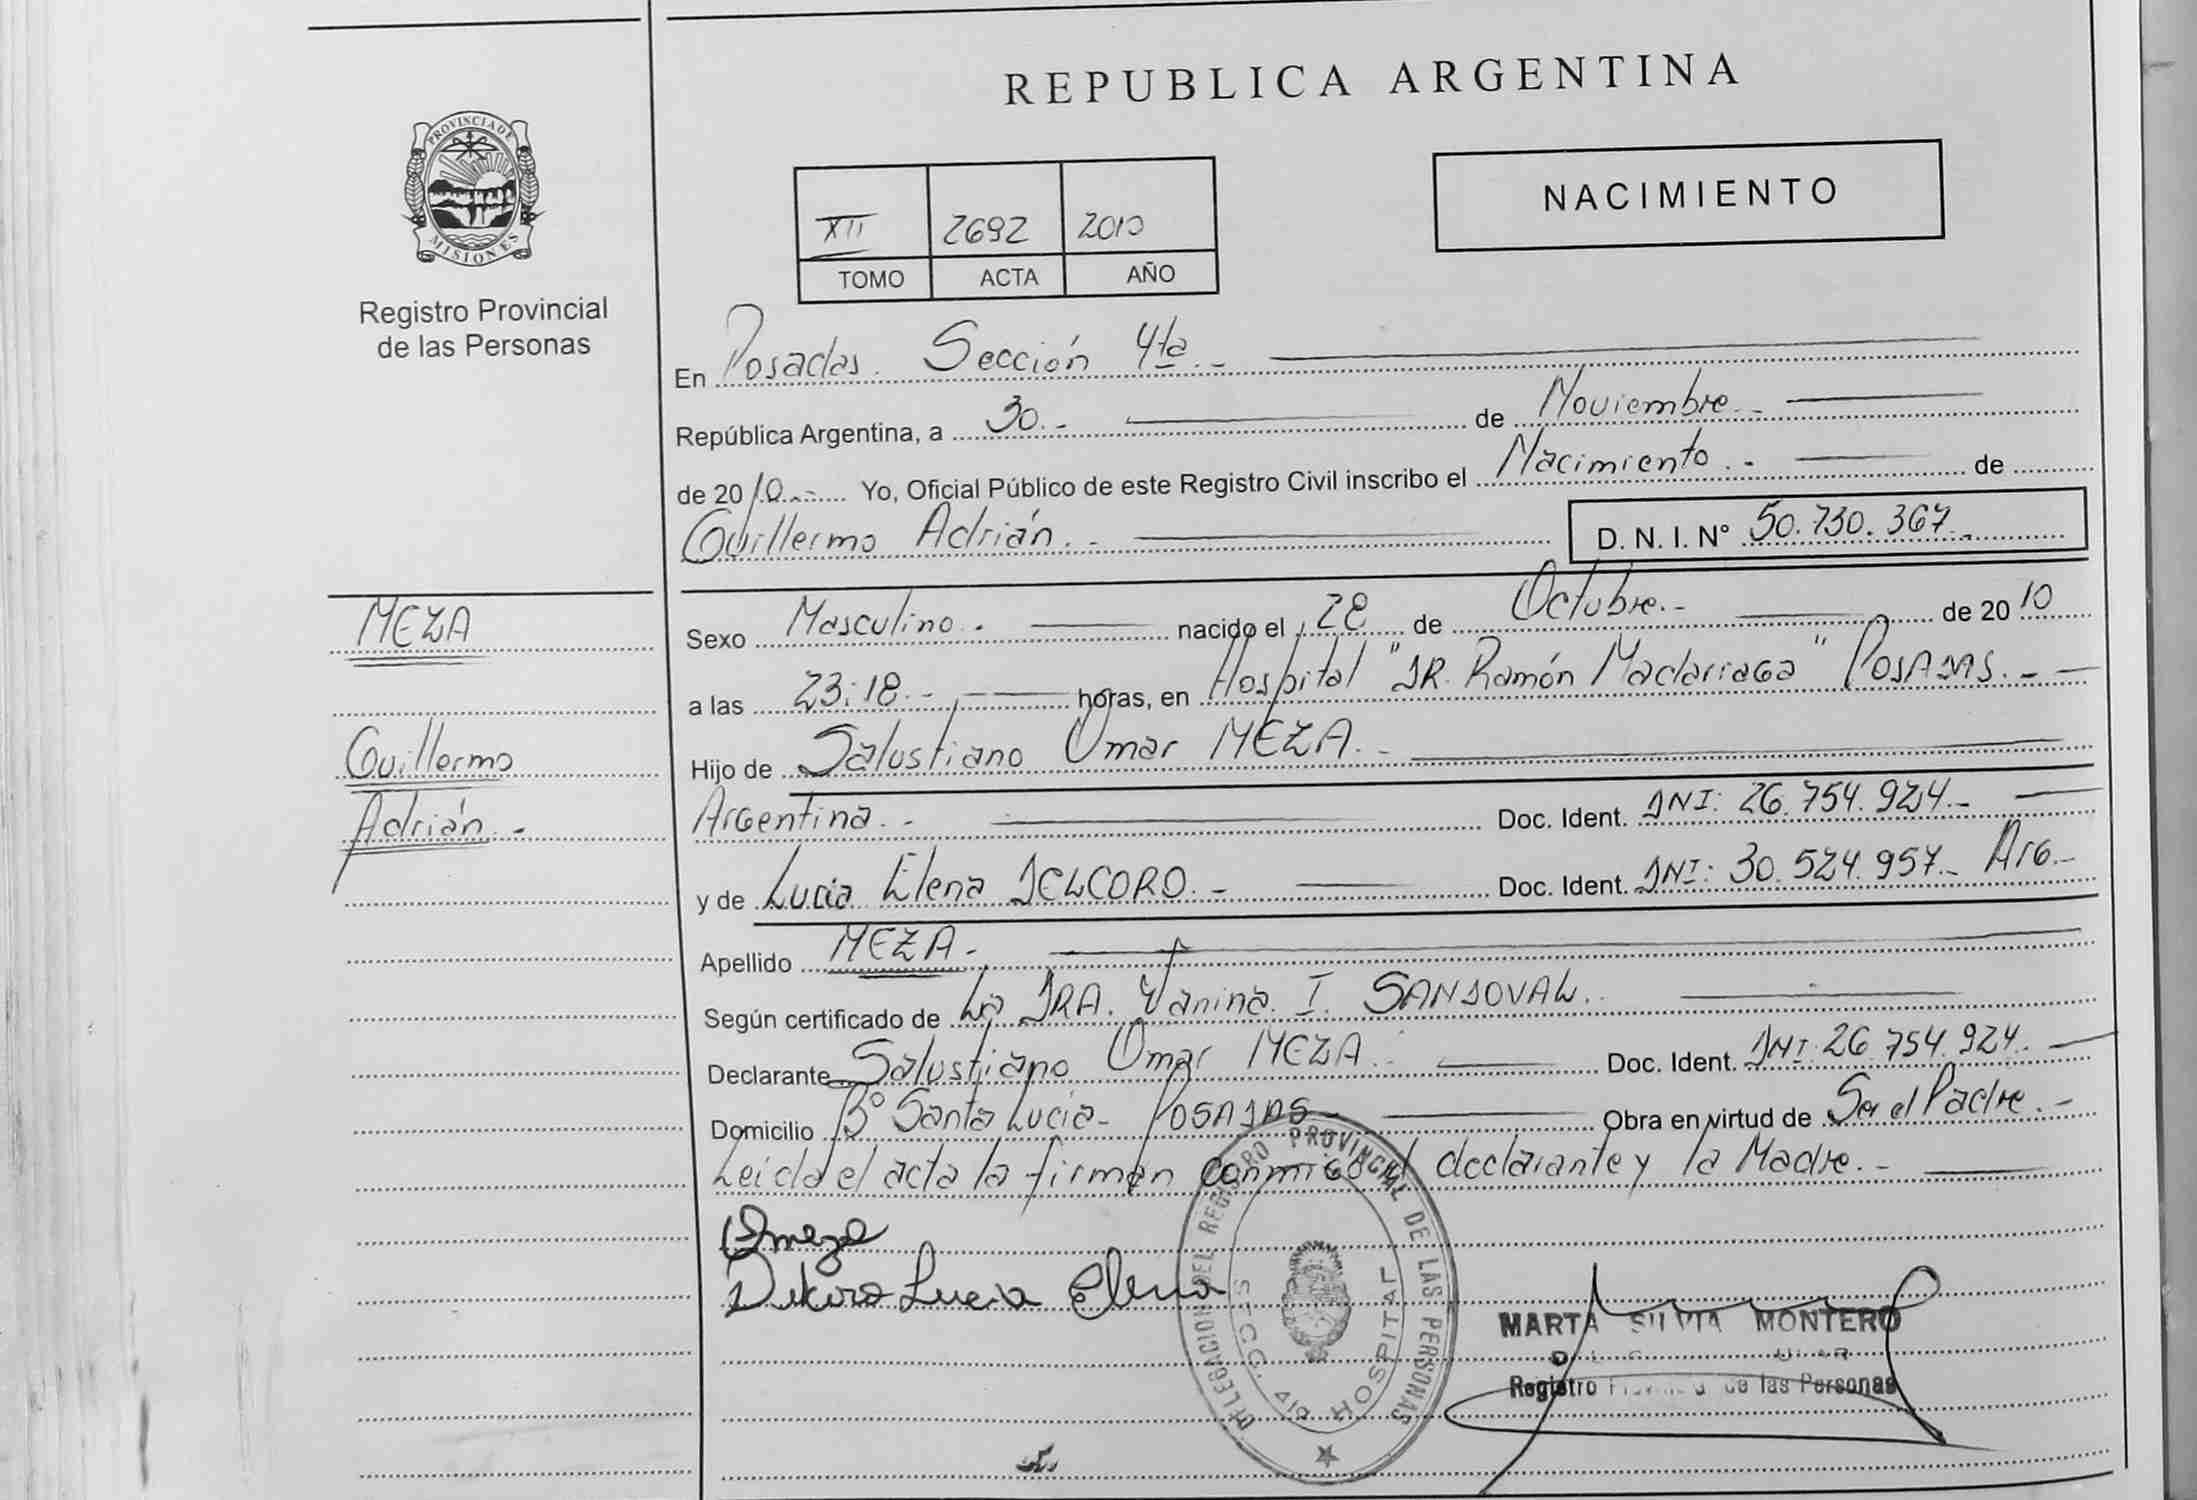 PROVINCIA DE
MISIONES
Registro Provincial
de las Personas
REPUBLICA ARGENTINA
NACIMIENTO
XII 2692 2010
TOMO ACTA AÑO
En Posadas. Sección 4ta.-
República Argentina, a 30.- de Noviembre.-
de 2010.- Yo, Oficial Público de este Registro Civil inscribo el Nacimiento.- de
Guillermo Adrián.- D. N. I. Nº 50.730.367.-
MEZA
Guillermo
Adrián.-
Sexo Masculino.- nacido el 28 de Octubre.- de 2010
a las 23:18.- horas, en Hospital "DR. Ramón Madariaga" POSADAS.-
Hijo de Salustiano Omar MEZA.-
Argentina.- Doc. Ident. DNI: 26.754.924.-
y de Lucia Elena DELCORO.- Doc. Ident. DNI: 30.524.957.- Arg.-
Apellido MEZA.-
Según certificado de La DRA. Yanina. I. SANDOVAL.
Declarante Salustiano Omar MEZA.- Doc. Ident. DNI: 26.754.924.-
Domicilio Bº Santa Lucia- POSADAS- Obra en virtud de Ser el Padre.-
Leida el acta la firman conmigo el declarante y la Madre.-
Omeza
Delcoro Lucia Elena
DELEGACION DEL REGISTRO PROVINCIAL DE LAS PERSONAS
SECC. 4ta HOSPITAL
MARTA SILVIA MONTERO
Registro Provincial de las Personas